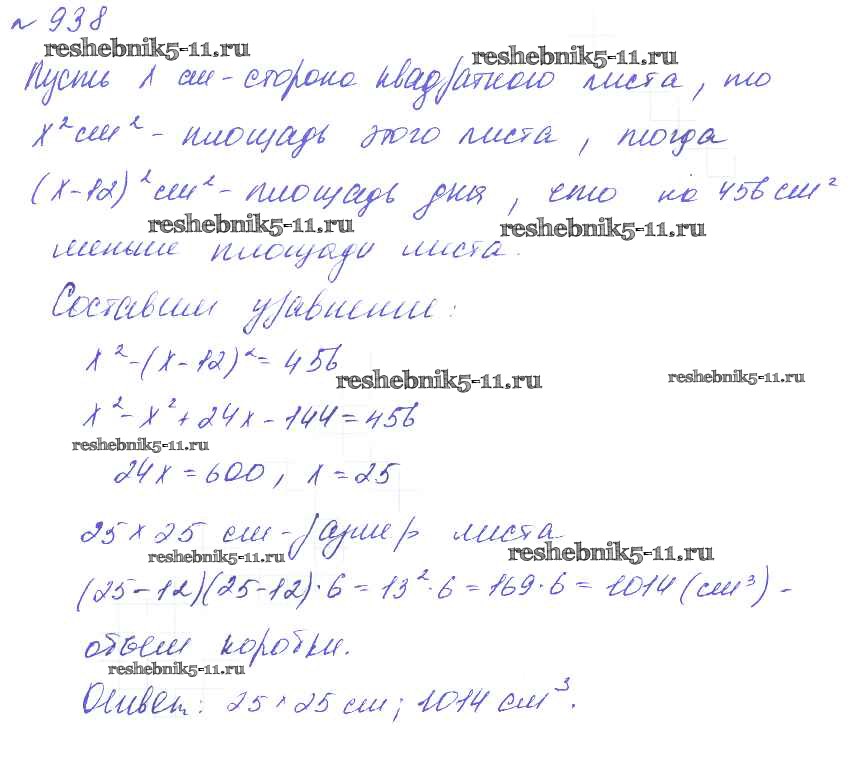 № 938
reshebnik5-11.ru
reshebnik5-11.ru
Пусть x см - сторона квадратного листа, то
x² см² - площадь этого листа, тогда
(x-12)² см² - площадь дна, что на 456 см²
reshebnik5-11.ru
reshebnik5-11.ru
меньше площади листа.
Составим уравнение:
x² - (x-12)² = 456
reshebnik5-11.ru
reshebnik5-11.ru
x² - x² + 24x - 144 = 456
reshebnik5-11.ru
24x = 600, x = 25
25 × 25 см - размер листа
reshebnik5-11.ru
reshebnik5-11.ru
(25-12)(25-12)·6 = 13²·6 = 169·6 = 1014 (см³) -
объем коробки.
reshebnik5-11.ru
Ответ: 25 × 25 см; 1014 см³.